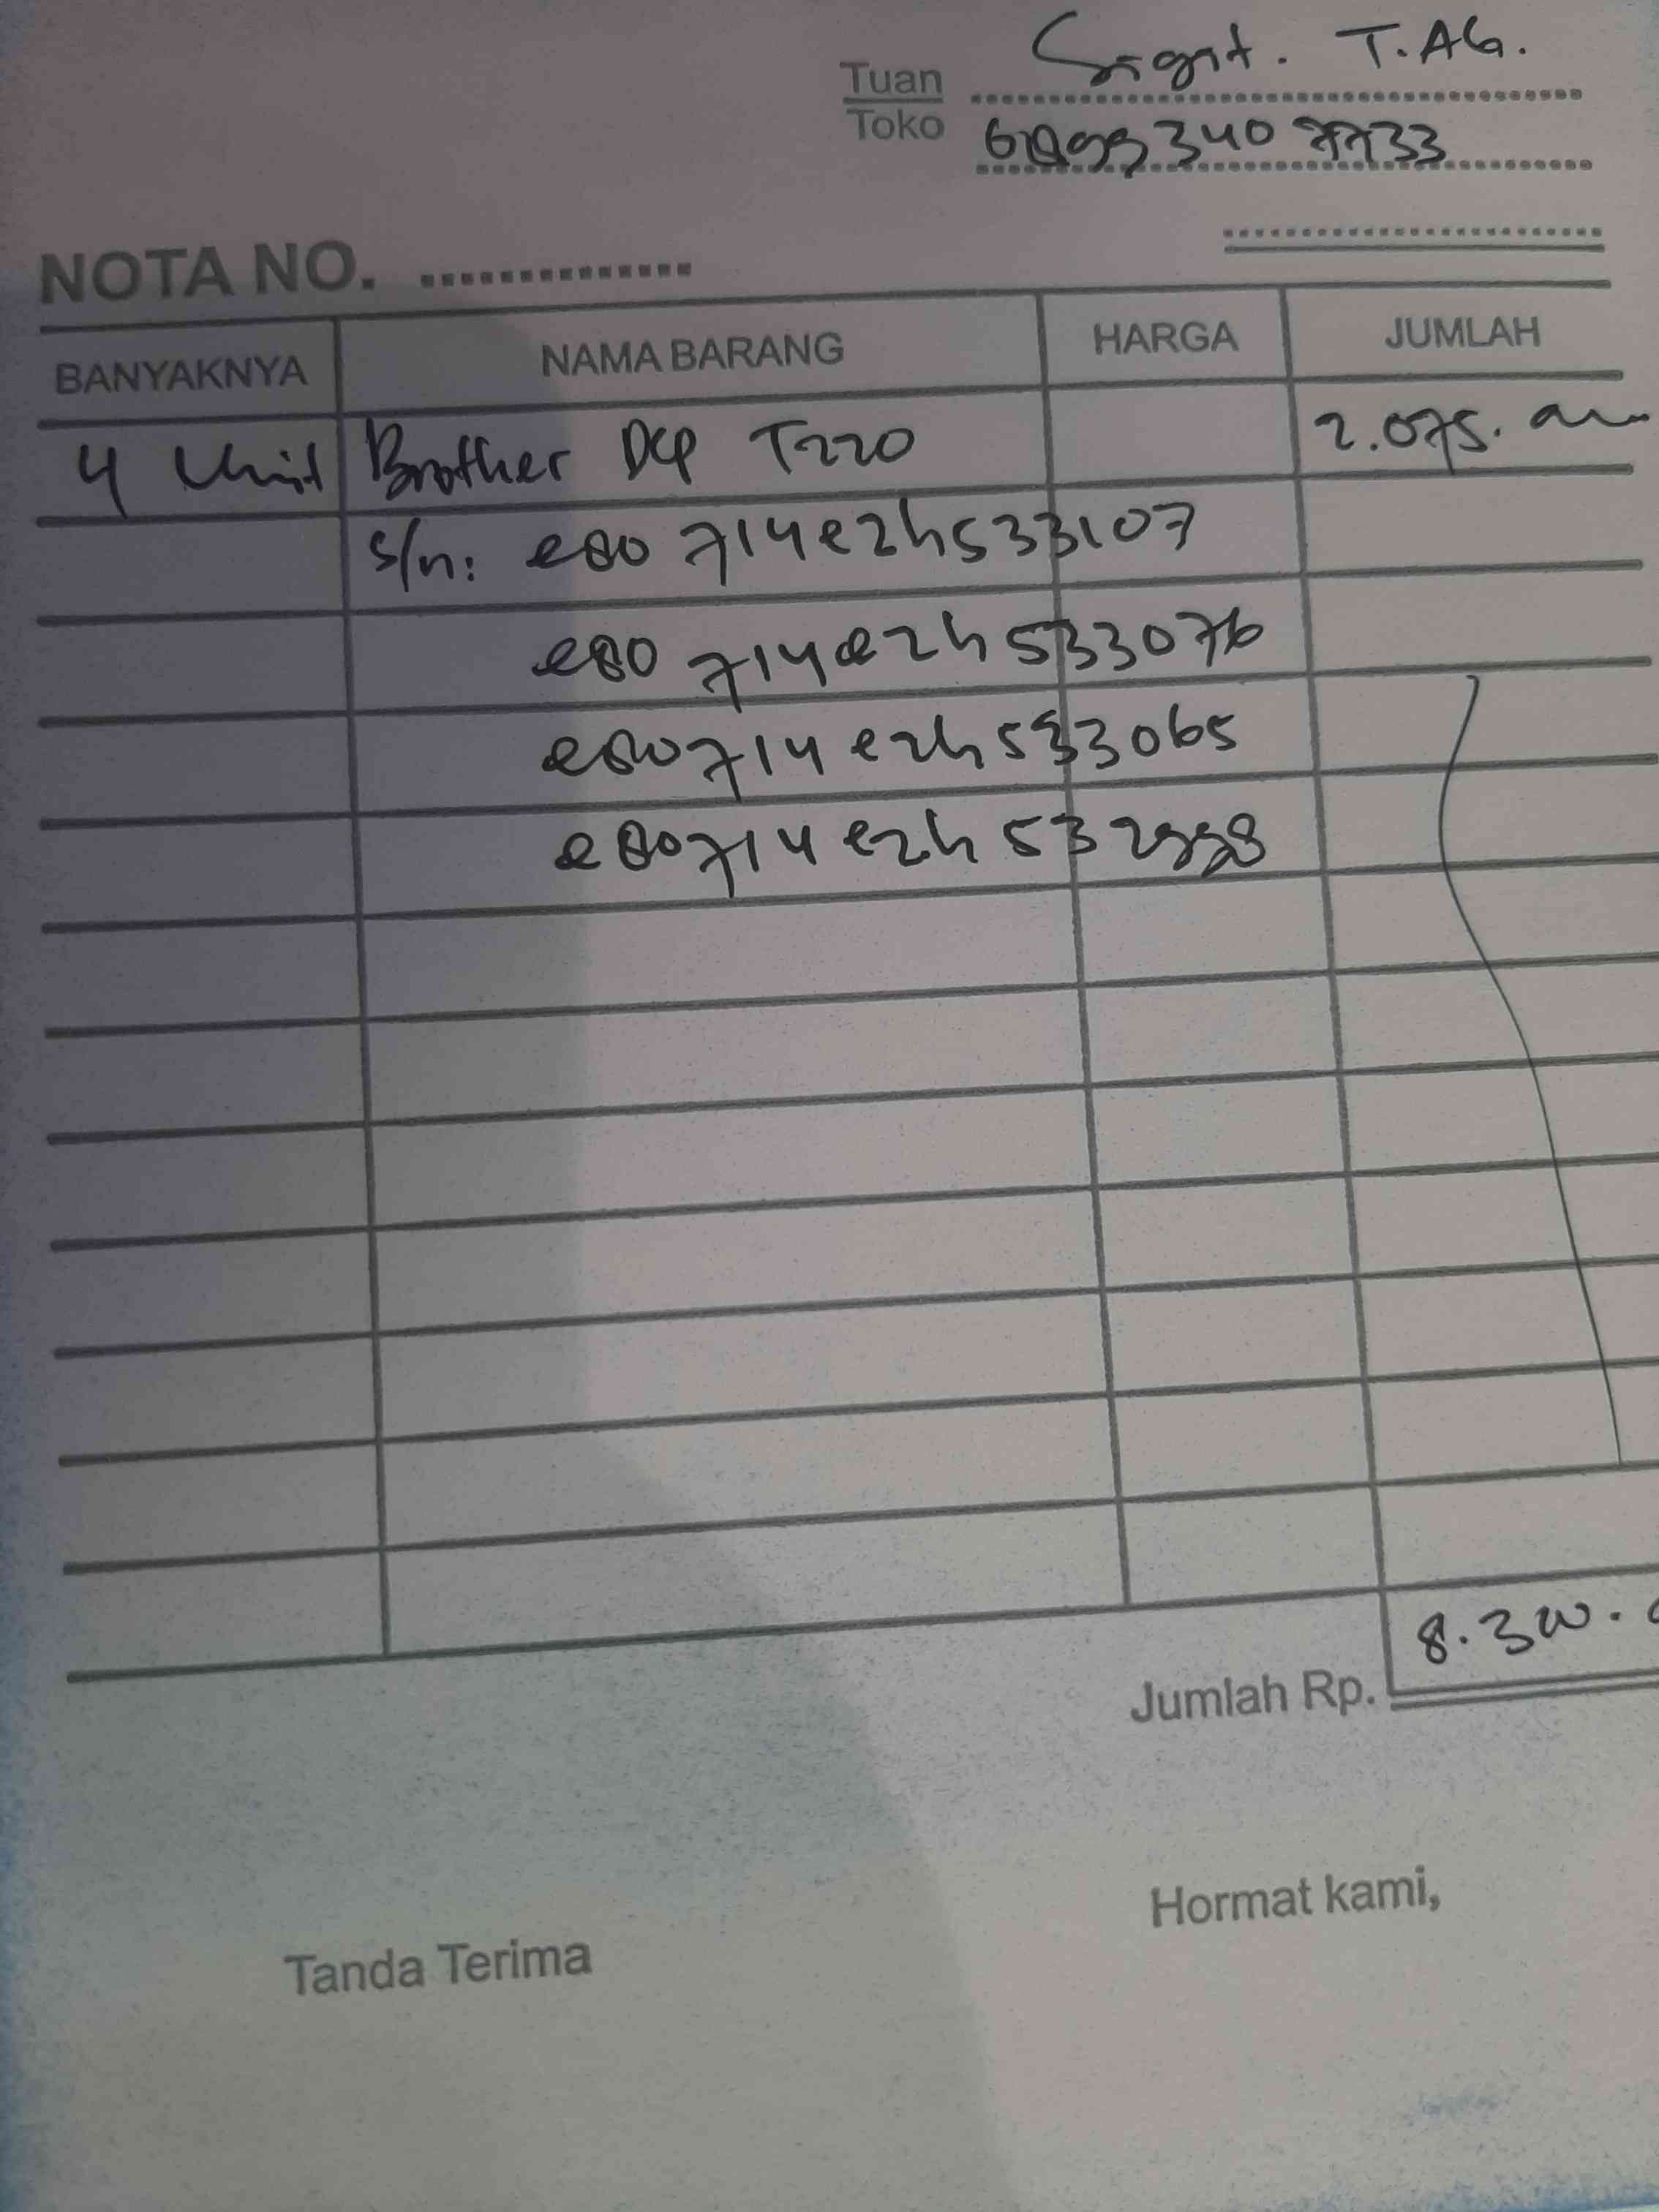 Tuan Sigit. T.AG.
Toko 3407733
NOTA NO. ...............
BANYAKNYA NAMA BARANG HARGA JUMLAH
4 Unit Brother DCP T220 2.075.
s/n: e80 714e2h533107
e80 714e2h533076
e80714e2h533065
e80714e2h532998
Jumlah Rp. 8.300.
Tanda Terima Hormat kami,